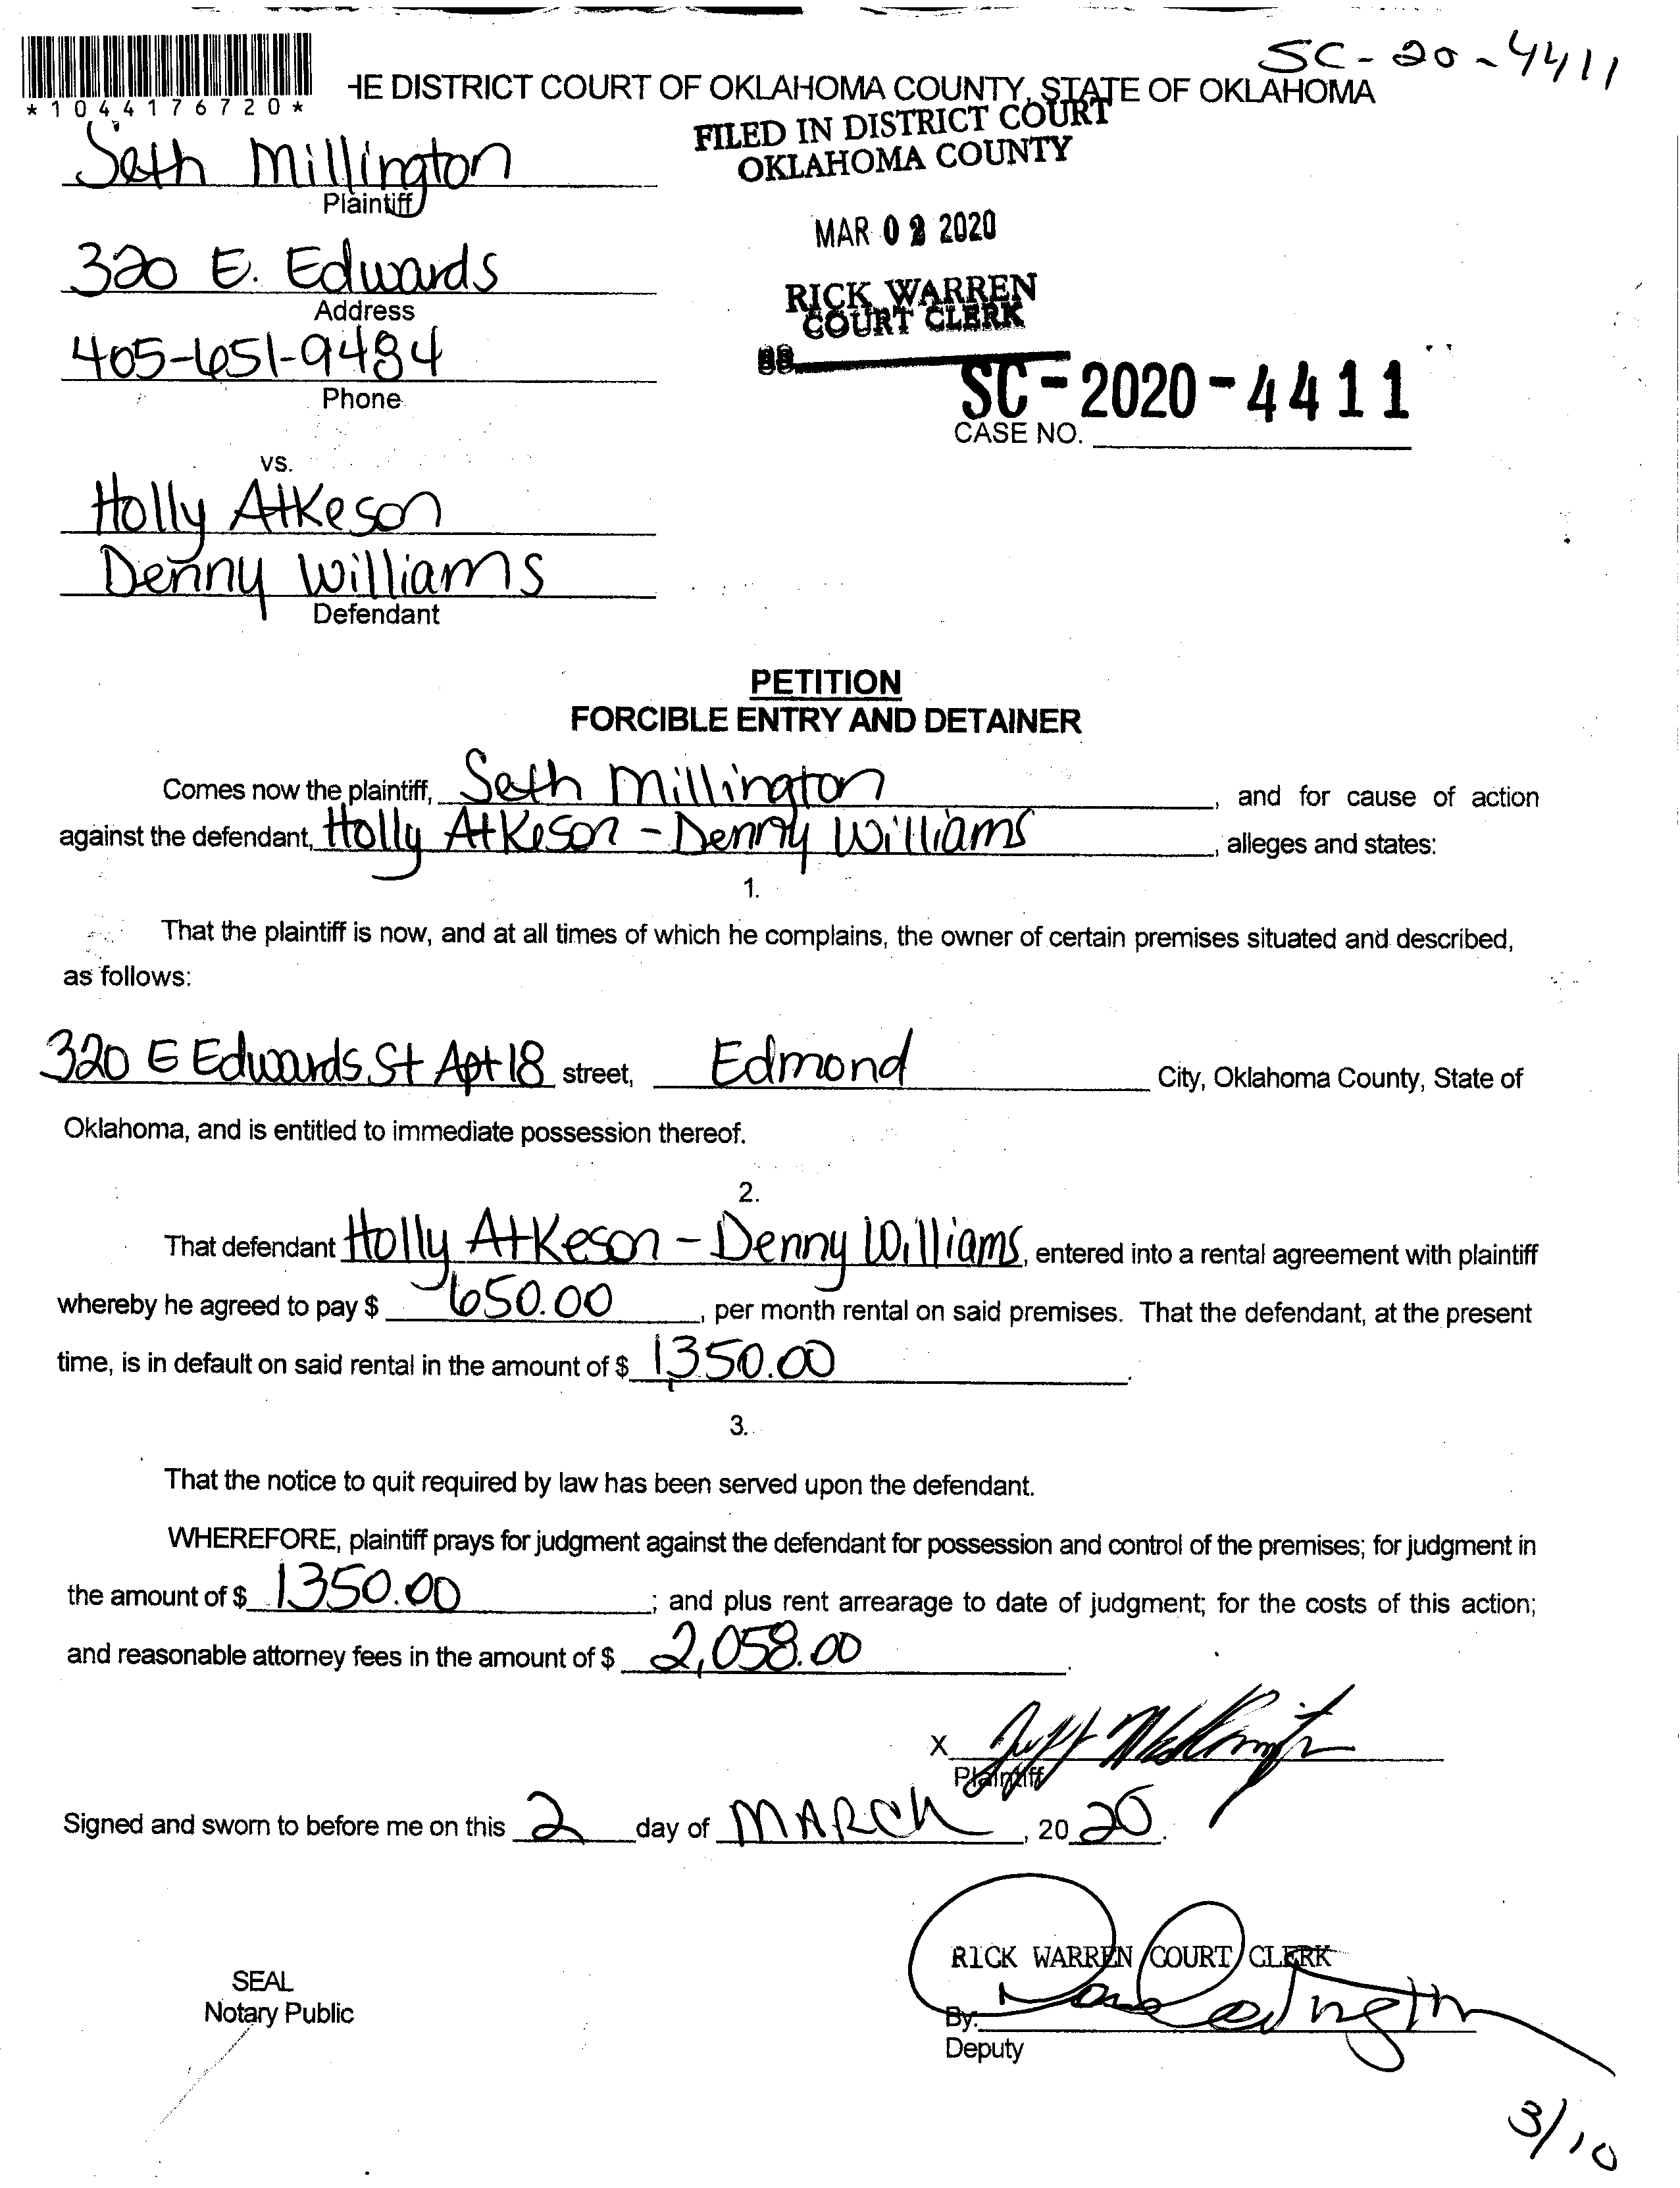 SC-20-4411
*1044176720*
HE DISTRICT COURT OF OKLAHOMA COUNTY, STATE OF OKLAHOMA
FILED IN DISTRICT COURT
OKLAHOMA COUNTY
Seth Millington
Plaintiff
MAR 02 2020
320 E. Edwards
Address
RICK WARREN
COURT CLERK
405-651-9484
Phone
SC-2020-4411
CASE NO.
vs.
Holly Atkeson
Denny Williams
Defendant
PETITION
FORCIBLE ENTRY AND DETAINER
Comes now the plaintiff, Seth Millington, and for cause of action
against the defendant, Holly Atkeson - Denny Williams, alleges and states:
1.
That the plaintiff is now, and at all times of which he complains, the owner of certain premises situated and described,
as follows:
320 E Edwards St Apt 18 street, Edmond City, Oklahoma County, State of
Oklahoma, and is entitled to immediate possession thereof.
2.
That defendant Holly Atkeson - Denny Williams, entered into a rental agreement with plaintiff
whereby he agreed to pay $ 650.00, per month rental on said premises. That the defendant, at the present
time, is in default on said rental in the amount of $ 1350.00.
3.
That the notice to quit required by law has been served upon the defendant.
WHEREFORE, plaintiff prays for judgment against the defendant for possession and control of the premises; for judgment in
the amount of $ 1350.00; and plus rent arrearage to date of judgment; for the costs of this action;
and reasonable attorney fees in the amount of $ 2,058.00.
X
Plaintiff
Signed and sworn to before me on this 2 day of MARCH, 2020.
RICK WARREN COURT CLERK
SEAL
Notary Public
By:
Deputy
3/10